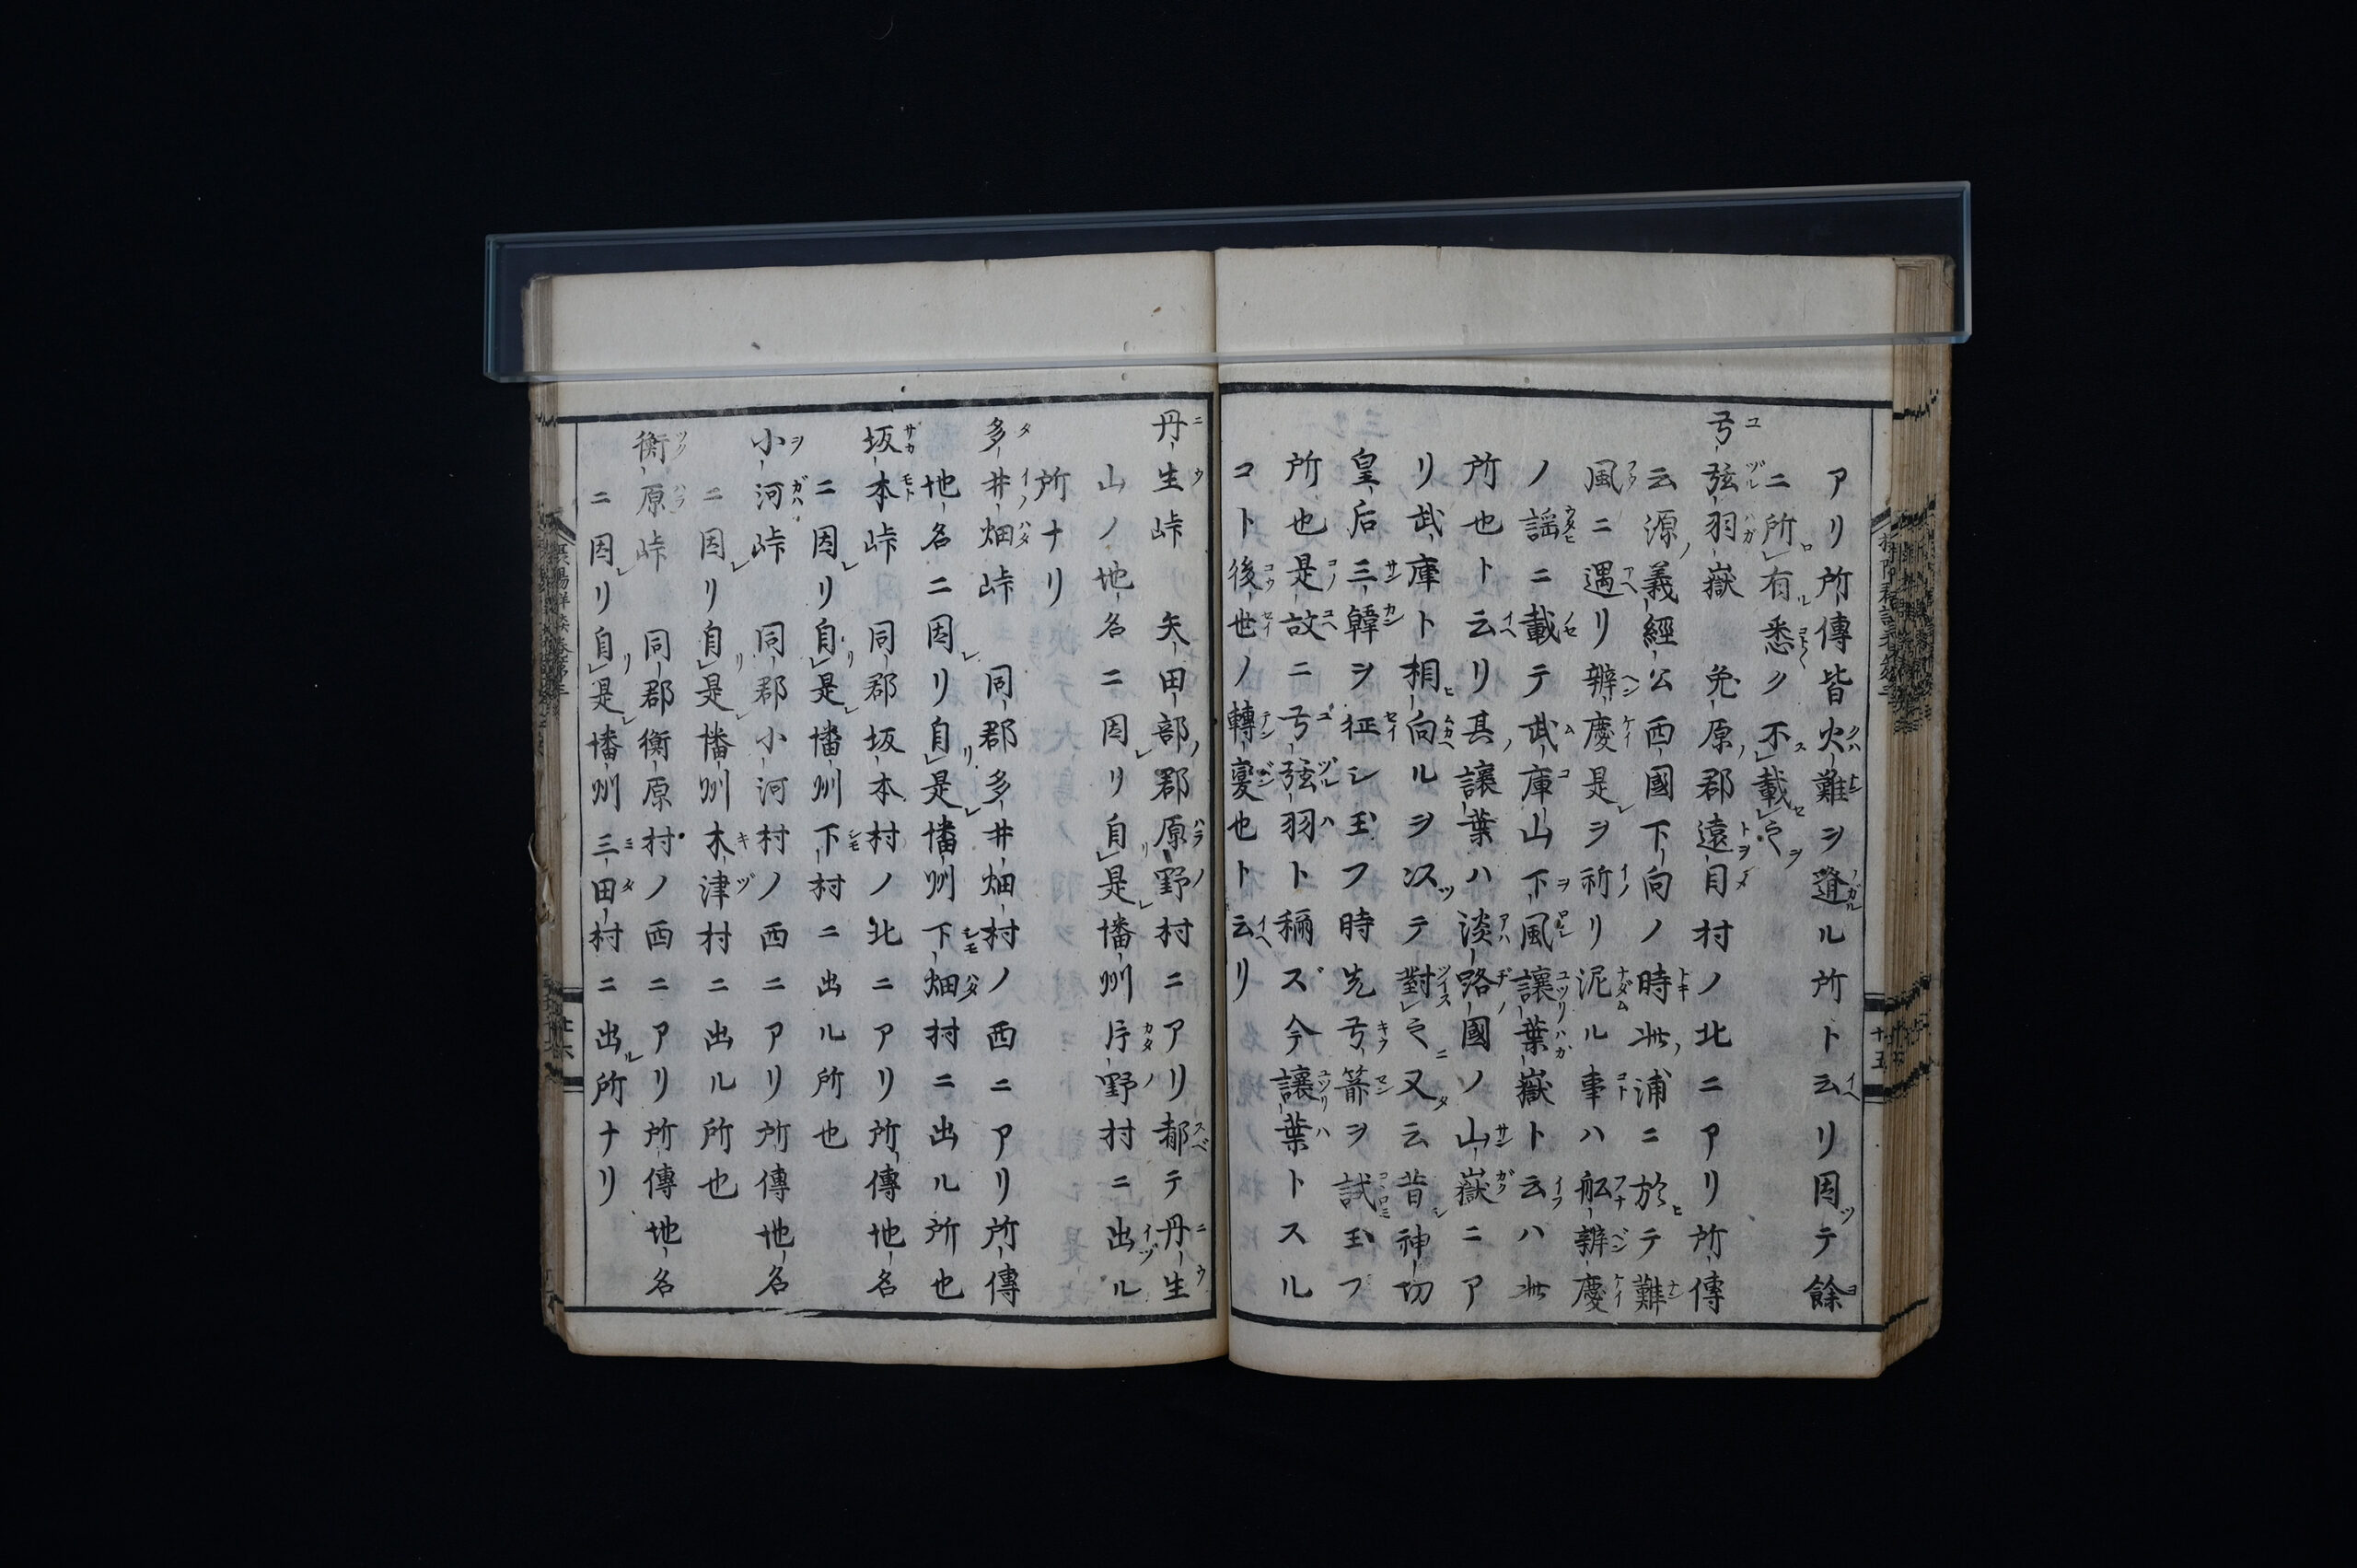 アリ所傳皆火難ヲ遁ル所ト云リ因テ餘
ニ所有悉ク不載之
弓弦羽嶽　兔原郡遠目村ノ北ニアリ所傳
云源義經公西國下向ノ時此浦ニ於テ難
風ニ遇リ辨慶是ヲ祈リ泥ル事ハ舩辨慶
ノ謡ニ載テ武庫山下風讓葉嶽ト云ハ此
所也ト云リ其讓葉ハ淡路國ノ山嶽ニア
リ武庫ト相向ルヲ以テ對之又云昔神切
皇后三韓ヲ征シ玉フ時先弓箭ヲ試玉フ
所也是故ニ弓弦羽ト稱ズ今讓葉トスル
コト後世ノ轉變也ト云リ
丹生峠　矢田部郡原野村ニアリ都テ丹生
山ノ地名ニ因リ自是播州片野村ニ出ル
所ナリ
多井畑峠　同郡多井畑村ノ西ニアリ所傳
地名ニ因リ自是播州下畑村ニ出ル所也
坂本峠　同郡坂本村ノ北ニアリ所傳地名
ニ因リ自是播州下村ニ出ル所也
小河峠　同郡小河村ノ西ニアリ所傳地名
ニ因リ自是播州木津村ニ出ル所也
衡原峠　同郡衡原村ノ西ニアリ所傳地名
ニ因リ自是播州三田村ニ出ル所ナリ